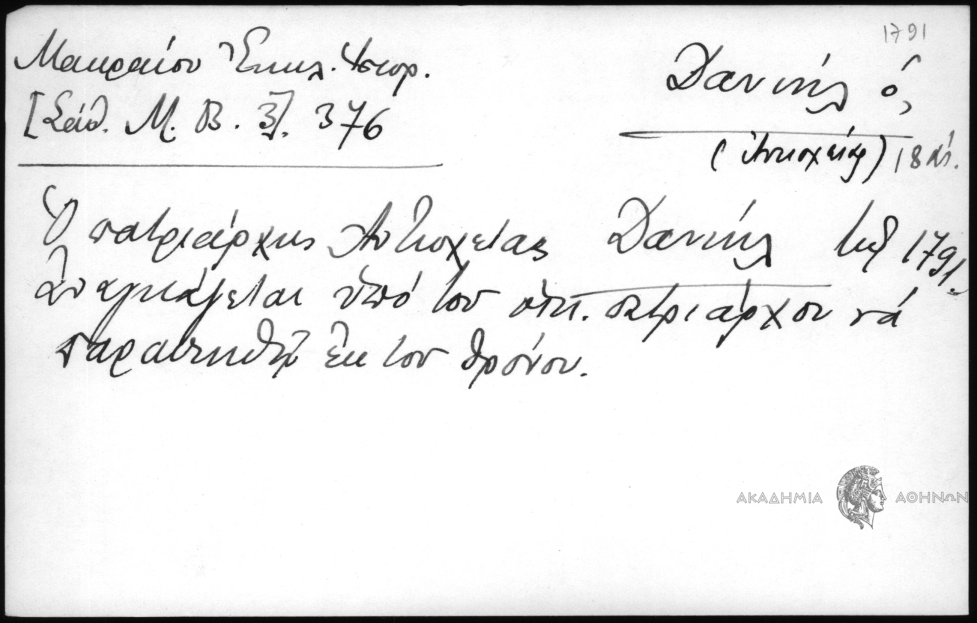 1791
Μακραίου Ἐκκλ. Ἱστορ.
[Σάθ. Μ. Β. 3]. 376
Δανιὴλ ὁ,
(Ἀντιοχείας) 18 αἰ.
Ὁ πατριάρχης Ἀντιοχείας Δανιὴλ τῷ 1791
ἀναγκάζεται ὑπὸ τοῦ οἰκ. πατριάρχου νά
παραιτηθῇ ἐκ τοῦ θρόνου.
ΑΚΑΔΗΜΙΑ ΑΘΗΝΩΝ